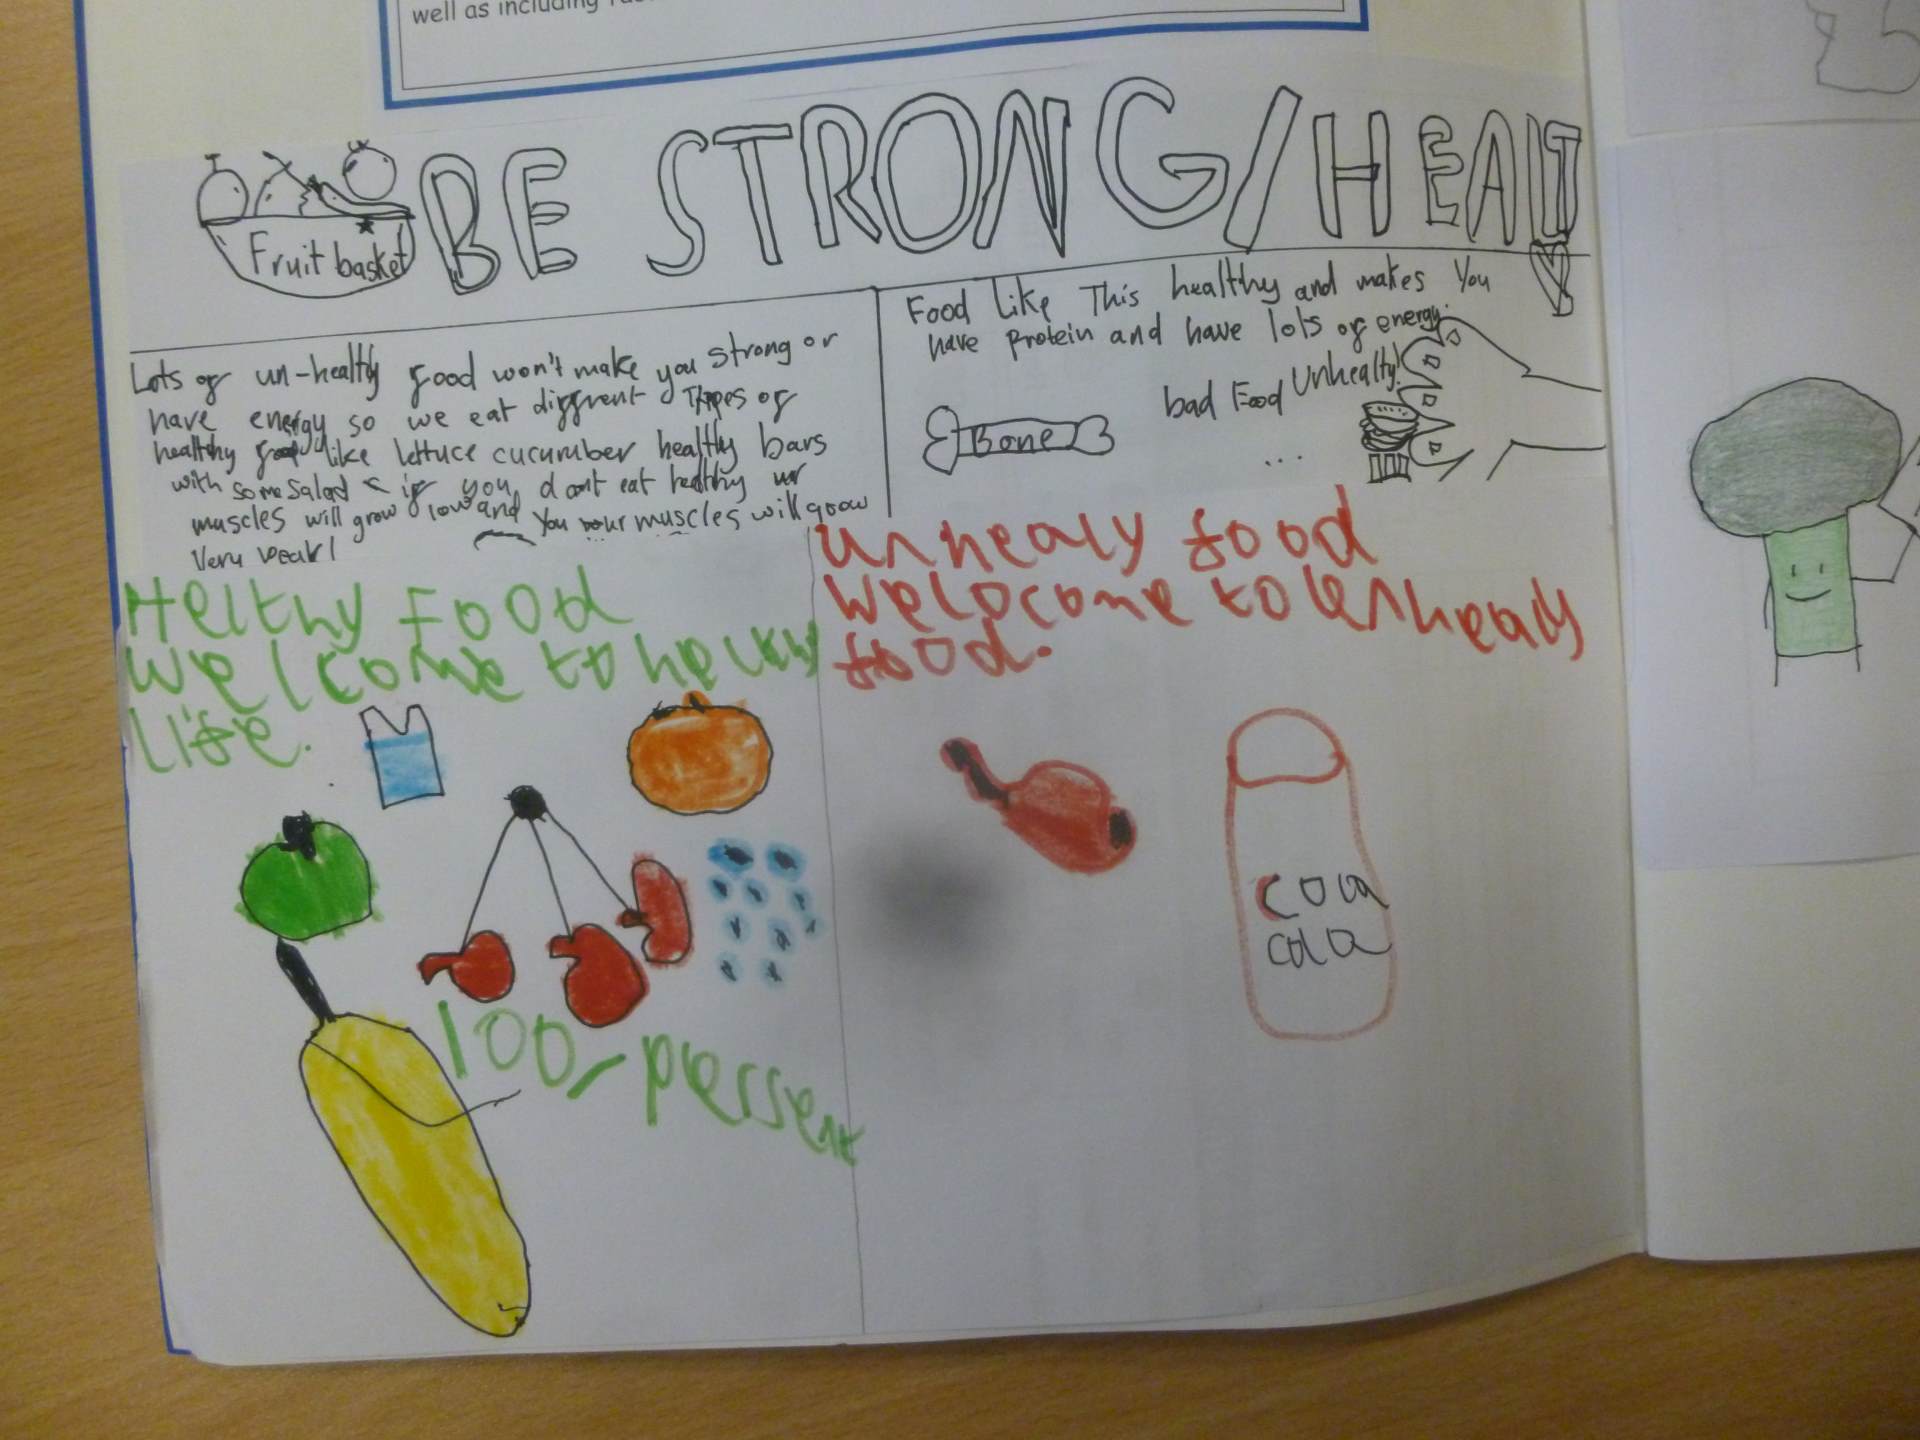 well as including
BE STRONG/HEALTHY
Fruit basket
Lots of un-healthy food won't make you strong or
have energy so we eat diffrent Types of
healthy food like lettuce cucumber healthy bars
with some salad if you dont eat healthy ur
muscles will grow low and you your muscles will grow
Very weak!
Food Like This healthy and makes You
have protein and have lots of energy.
Bone
bad Food Unhealty!
...
Helthy Food
Welcome to helthy
Life.
100% perssent
unhealy food
Welocome to unhealy
food.
coca
cola